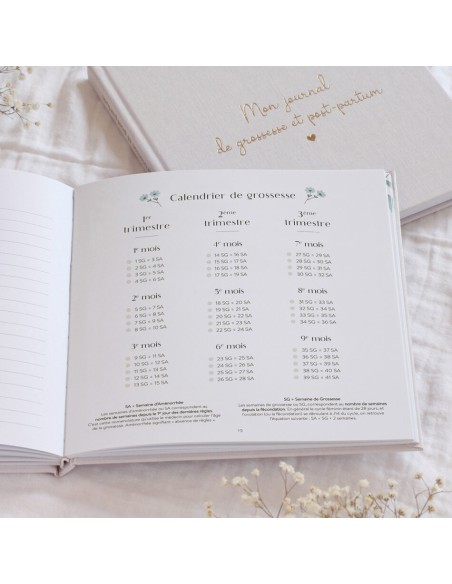 Mon journal
de grossesse et post-partum
Calendrier de grossesse
1er trimestre
1er mois
1 SG = 3 SA
2 SG = 4 SA
3 SG = 5 SA
4 SG = 6 SA
2e mois
5 SG = 7 SA
6 SG = 8 SA
7 SG = 9 SA
8 SG = 10 SA
3e mois
9 SG = 11 SA
10 SG = 12 SA
11 SG = 13 SA
12 SG = 14 SA
13 SG = 15 SA
2ème trimestre
4e mois
14 SG = 16 SA
15 SG = 17 SA
16 SG = 18 SA
17 SG = 19 SA
5e mois
18 SG = 20 SA
19 SG = 21 SA
20 SG = 22 SA
21 SG = 23 SA
22 SG = 24 SA
6e mois
23 SG = 25 SA
24 SG = 26 SA
25 SG = 27 SA
26 SG = 28 SA
3ème trimestre
7e mois
27 SG = 29 SA
28 SG = 30 SA
29 SG = 31 SA
30 SG = 32 SA
8e mois
31 SG = 33 SA
32 SG = 34 SA
33 SG = 35 SA
34 SG = 36 SA
9e mois
35 SG = 37 SA
36 SG = 38 SA
37 SG = 39 SA
38 SG = 40 SA
39 SG = 41 SA
SA = Semaine d'Aménorrhée
Les semaines d'aménorrhée ou SA correspondent au
nombre de semaines depuis le 1er jour des dernières règles.
C'est votre nomenclature qu'utilise le médecin pour calculer l'âge
de la grossesse. Aménorrhée signifiant « absence de règles ».
SG = Semaine de Grossesse
Les semaines de grossesse ou SG, correspondent au nombre de semaines
depuis la fécondation. En général le cycle féminin étant de 28 jours, et
l'ovulation (ou fécondation) se déroulant à J14 du cycle, on retrouve
l'équation suivante : SA = SG + 2 semaines.